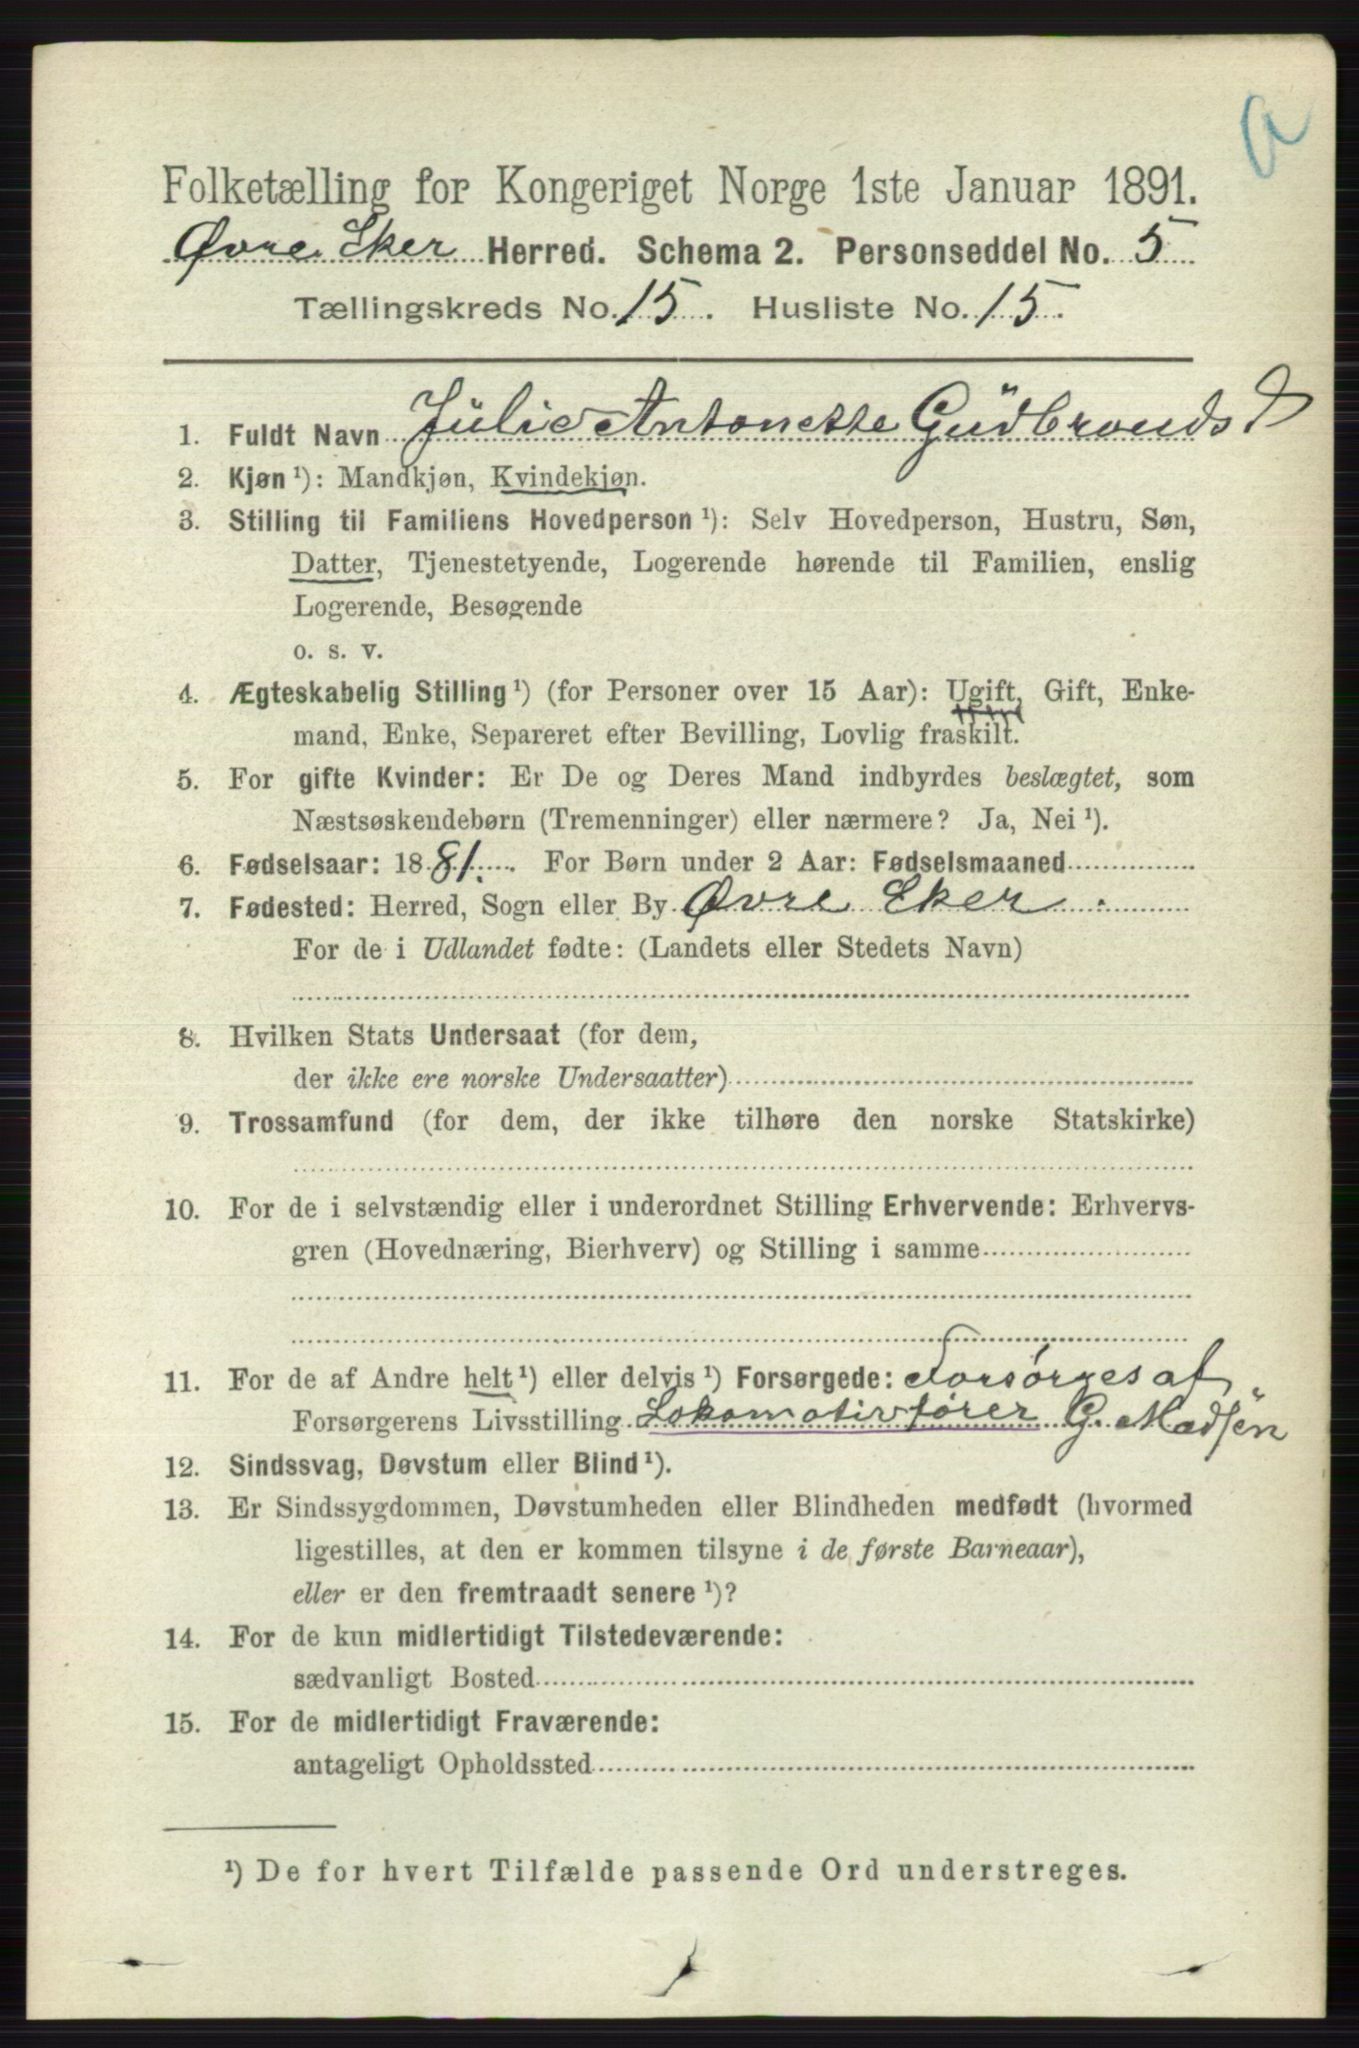 a
Folketælling for Kongeriget Norge 1ste Januar 1891.
Øvre Eker Herred. Schema 2. Personseddel No. 5
Tællingskreds No. 15. Husliste No. 15.
1. Fuldt Navn Julie Antonette Gudbrands D
2. Kjøn ¹): Mandkjøn, Kvindekjøn.
3. Stilling til Familiens Hovedperson ¹): Selv Hovedperson, Hustru, Søn,
Datter, Tjenestetyende, Logerende hørende til Familien, enslig
Logerende, Besøgende
o. s. v.
4. Ægteskabelig Stilling ¹) (for Personer over 15 Aar): Ugift, Gift, Enke-
mand, Enke, Separeret efter Bevilling, Lovlig fraskilt.
5. For gifte Kvinder: Er De og Deres Mand indbyrdes beslægtet, som
Næstsøskendebørn (Tremenninger) eller nærmere? Ja, Nei ¹).
6. Fødselsaar: 1881. For Børn under 2 Aar: Fødselsmaaned
7. Fødested: Herred, Sogn eller By Øvre Eker.
For de i Udlandet fødte: (Landets eller Stedets Navn)
8. Hvilken Stats Undersaat (for dem,
der ikke ere norske Undersaatter)
9. Trossamfund (for dem, der ikke tilhøre den norske Statskirke)
10. For de i selvstændig eller i underordnet Stilling Erhvervende: Erhvervs-
gren (Hovednæring, Bierhverv) og Stilling i samme
11. For de af Andre helt ¹) eller delvis ¹) Forsørgede: Forsørges af
Forsørgerens Livsstilling Lokomotivfører G. Madsen
12. Sindssvag, Døvstum eller Blind ¹).
13. Er Sindssygdommen, Døvstumheden eller Blindheden medfødt (hvormed
ligestilles, at den er kommen tilsyne i de første Barneaar),
eller er den fremtraadt senere ¹)?
14. For de kun midlertidigt Tilstedeværende:
sædvanligt Bosted
15. For de midlertidigt Fraværende:
antageligt Opholdssted
¹) De for hvert Tilfælde passende Ord understreges.